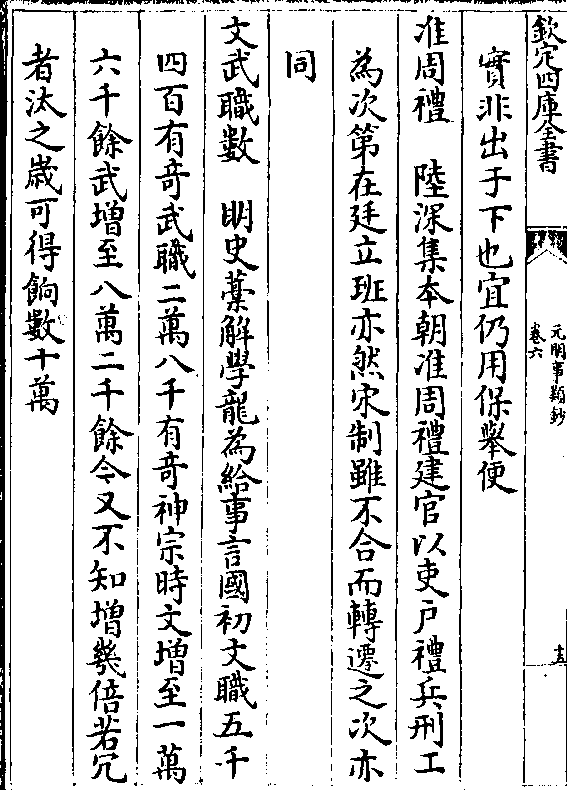 欽定四庫全書
元明事類鈔
卷六
十五
實非出于下也宜仍用保舉便
准周禮　陸深集本朝准周禮建官以吏戶禮兵刑工
為次第在廷立班亦然宋制雖不合而轉遷之次亦
同
文武職數　明史藁解學龍為給事言國初文職五千
四百有奇武職二萬八千有奇神宗時文增至一萬
六千餘武增至八萬二千餘今又不知增幾倍若冗
者汰之歲可得餉數十萬